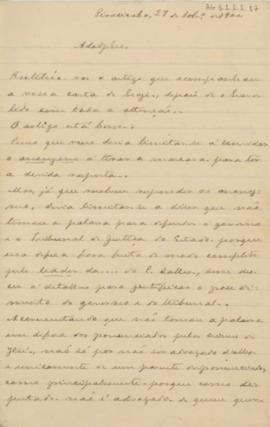 Piracicaba, 27 de 1900
Adolpho.
o artigo que acompanhou
a vossa carta de hoje, depois de o haver
lido com toda a attenção.
O artigo está bom.
Penso que vosso devia limitar-se a convidar
o anonymo a tirar a mascara, para ter
a devida resposta.
Mas, já que melhor responder ao anony-
mo, devia limitar-se a dizer que não
tomou a palavra para defender o governo
e o Tribunal de Justiça do Estado, porque
essa defesa fora feita de modo completo
pelo leader da.... do C. Salles, que des-
ceu a detalhes para justificar o proce-
dimento do governo e do tribunal.
Accrescentando que não tomou a palavra
em defesa dos pronunciados pelos crimes de
não só por não ser advogado d'elles
e unicamente de um parente do pronunciado,
como principalmente porque como de-
putado não é advogado de quem quer